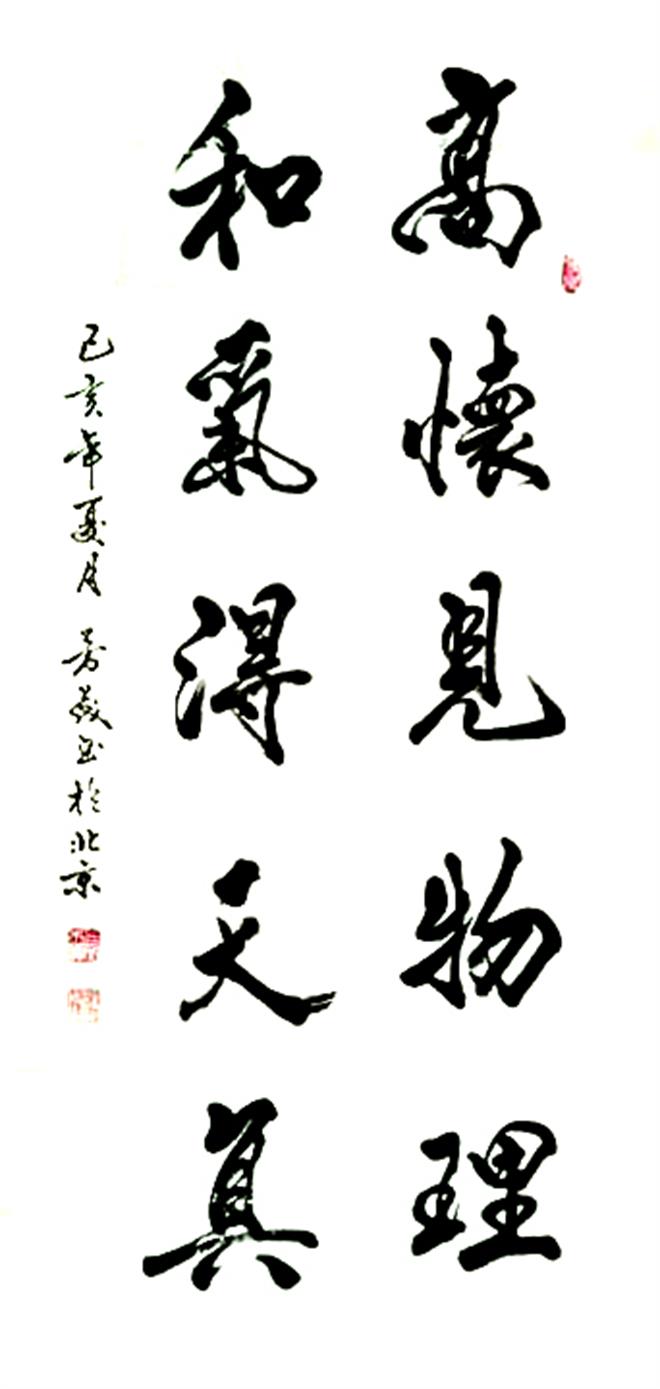 高懷見物理
和氣得天真
己亥年夏月 芳毅书於北京